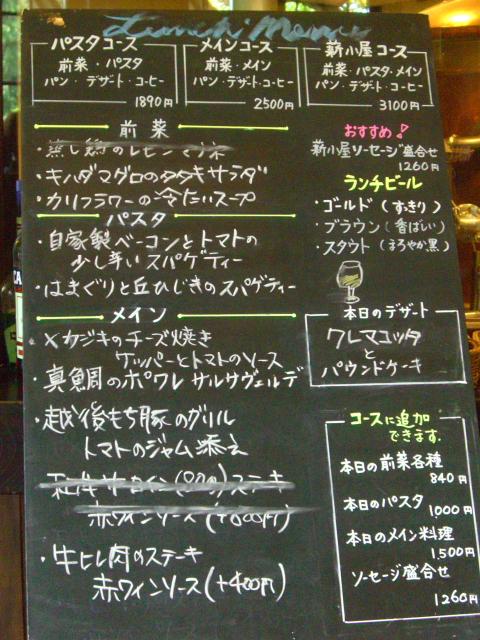 Lunch Menu
パスタコース
前菜・パスタ
パン・デザート・コーヒー
1890円
メインコース
前菜・メイン
パン・デザート・コーヒー
2500円
薪小屋コース
前菜・パスタ・メイン
パン・デザート・コーヒー
3100円
前菜
・蒸し鶏のレモンマリネ
・キハダマグロのタタキサラダ
・カリフラワーの冷たいスープ
パスタ
・自家製ベーコンとトマトの
少し辛いスパゲティー
・はまぐりと丘ひじきのスパゲティー
メイン
・メカジキのチーズ焼き
ケッパーとトマトのソース
・真鯛のポワレ サルサヴェルデ
・越後もち豚のグリル
トマトのジャム添え
ステキ
赤ワインソース(+800円)
・牛ヒレ肉のステーキ
赤ワインソース(+400円)
おすすめ!
薪小屋ソーセージ盛合せ
1260円
ランチビール
・ゴールド(すっきり)
・ブラウン(香ばしい)
・スタウト(まろやか黒)
本日のデザート
クレマコッタ
と
パウンドケーキ
コースに追加
できます.
本日の前菜各種
840円
本日のパスタ
1000円
本日のメイン料理
1500円
ソーセージ盛合せ
1260円